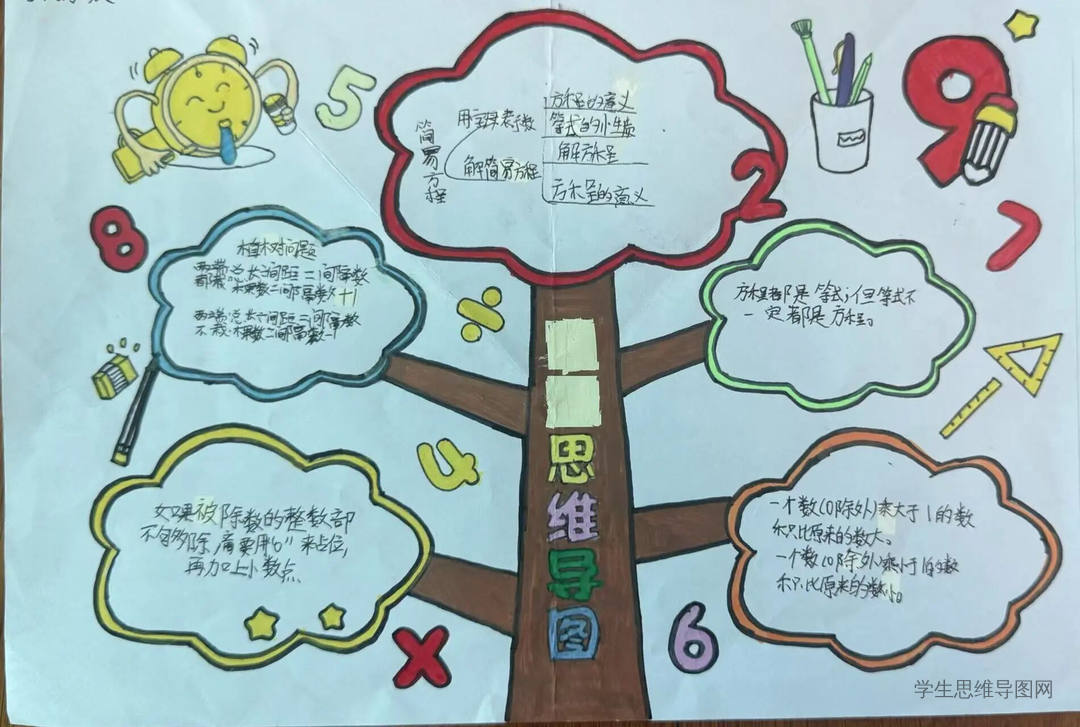 简易方程
用字母表示数
解简易方程
方程的意义
等式的性质
解方程
方程的意义
植树问题
两端 总长÷间距=间隔数
都栽 棵数=间隔数+1
两端 总长÷间距=间隔数
不栽 棵数=间隔数-1
方程都是等式,但等式不
一定都是方程。
如果被除数的整数部
不够除,需要用“0”来占位,
再加上小数点
一个数(0除外)乘大于1的数
积比原来的数大。
一个数(0除外)乘小于1的数
积比原来的数小。
思维导图
5
2
9
8
7
÷
5
×
6
学生思维导图网